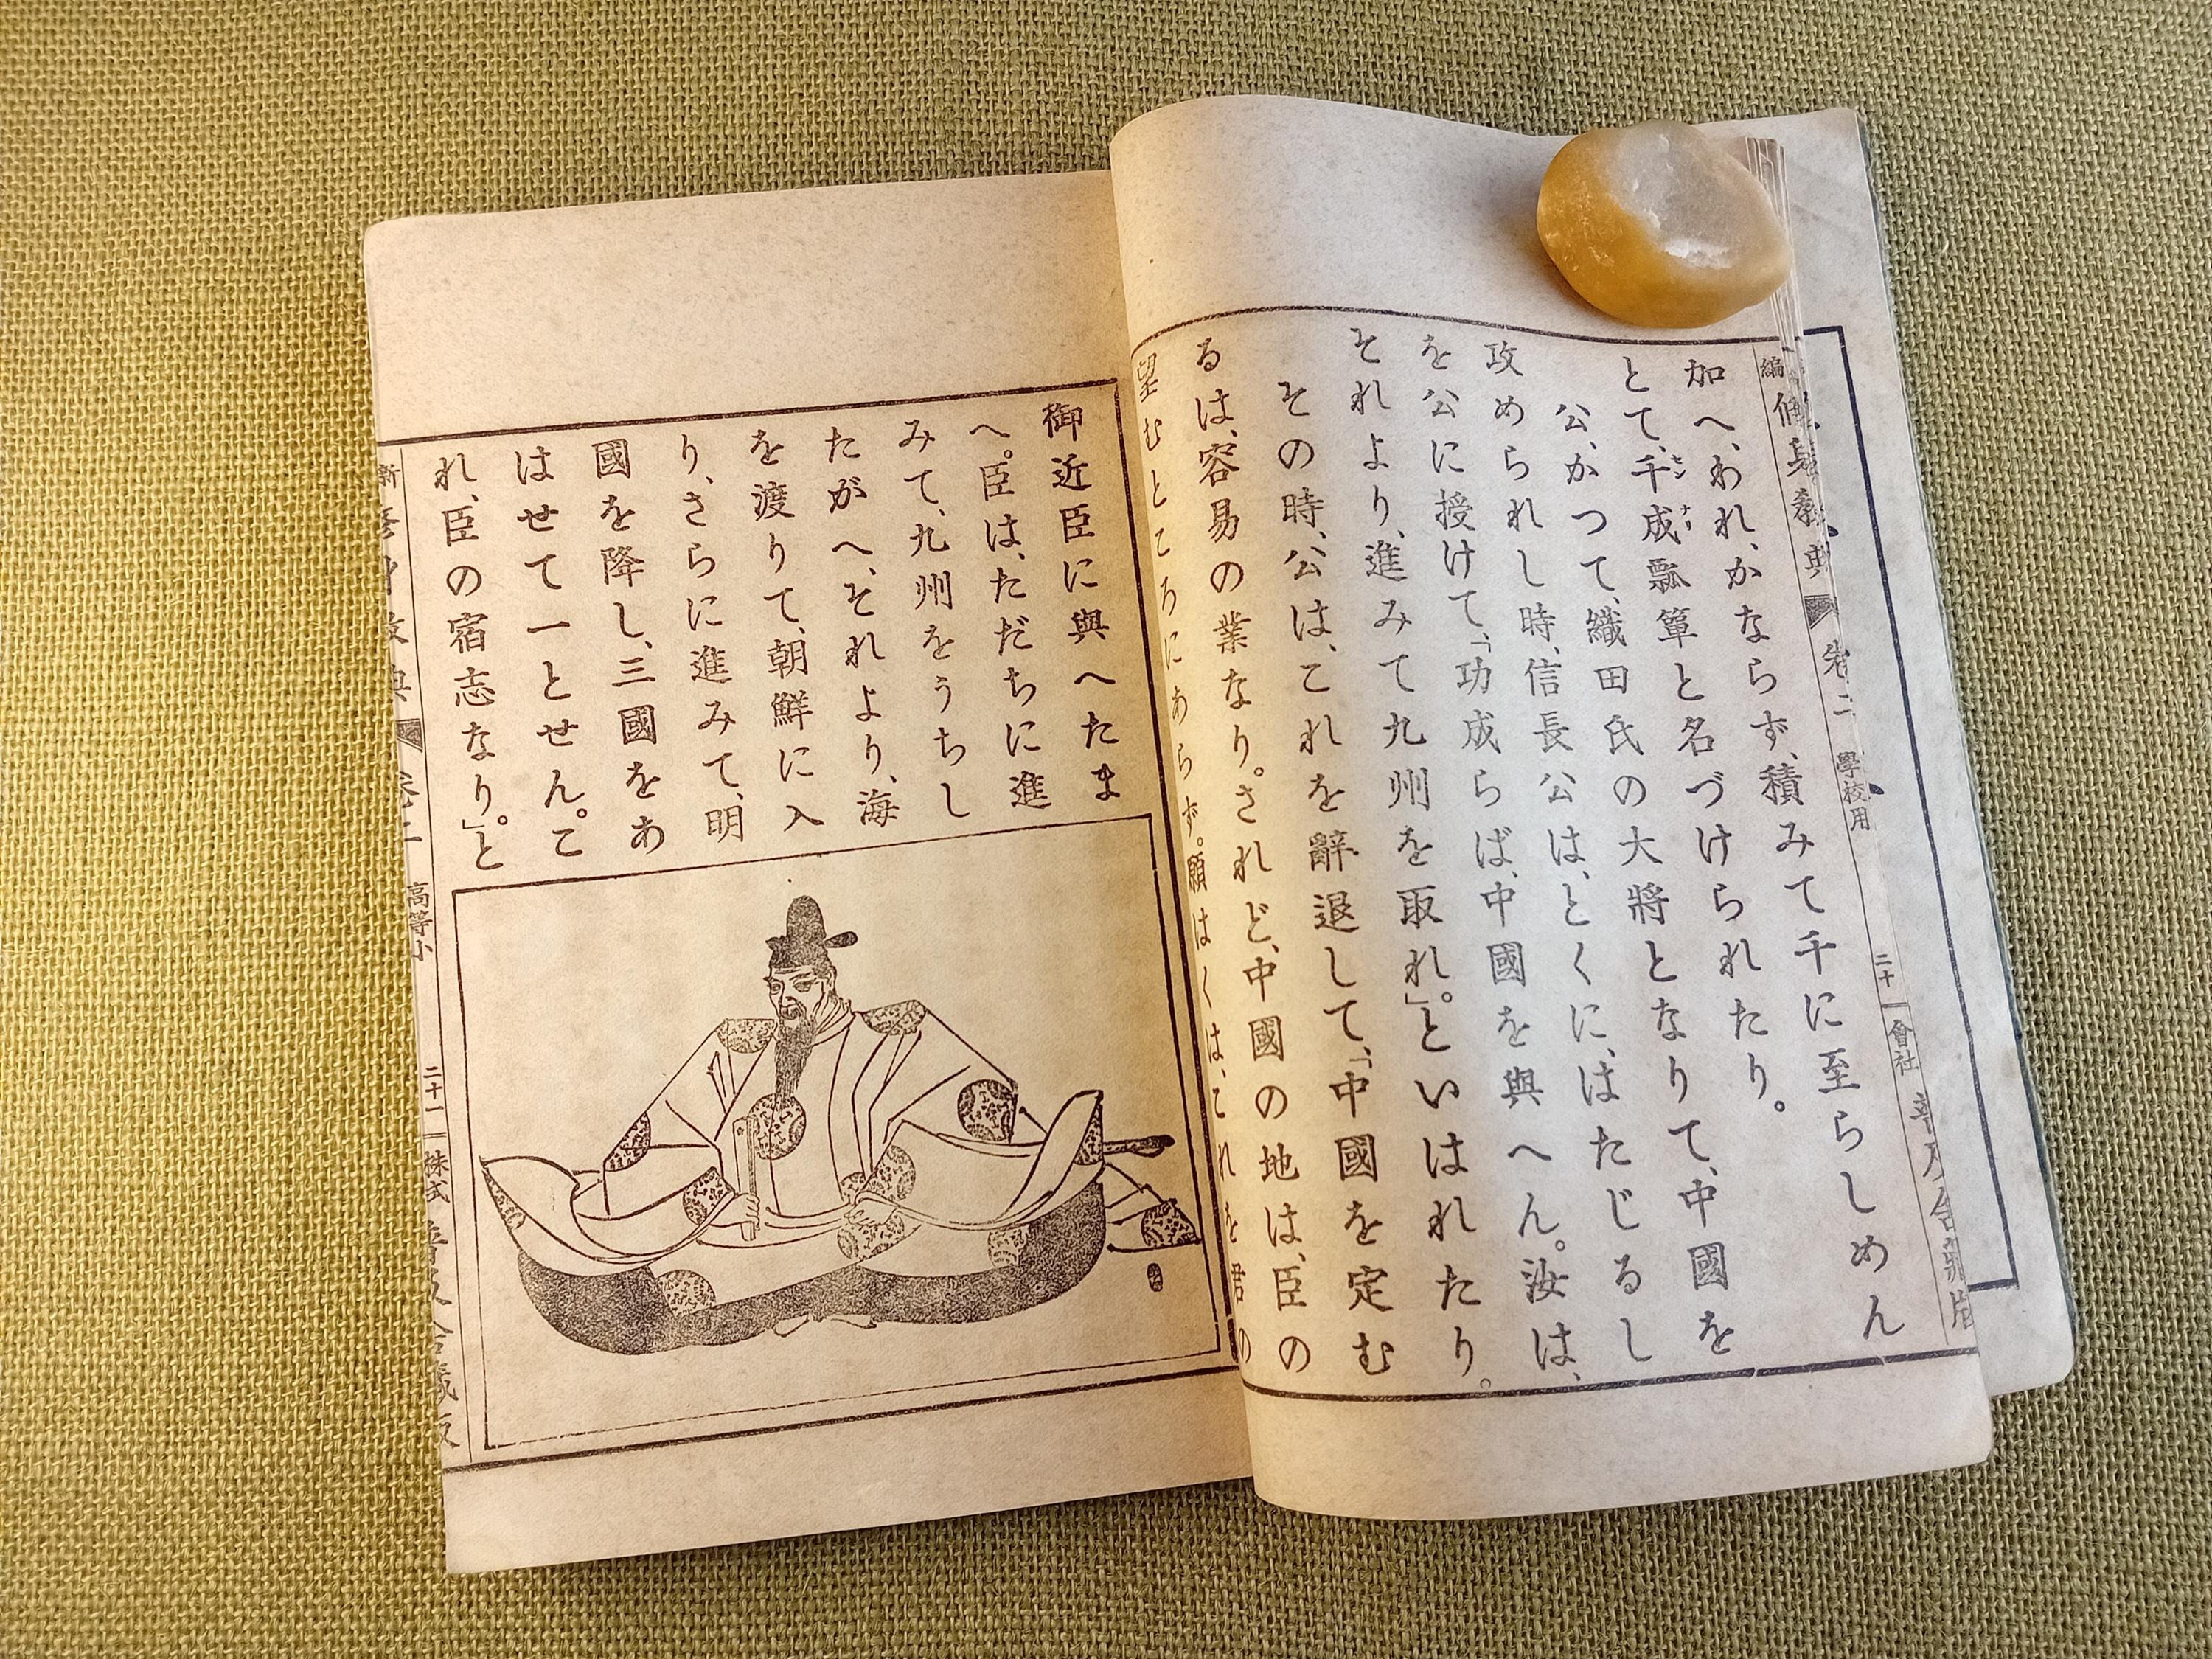 編 修身教典 卷二 學校用 二十 會社 普及舍藏版
加へ、われ、かならず、積みて千に至らしめん
とて、千成瓢簞と名づけられたり。
センナリ
公、かつて、織田氏の大將となりて、中國を
攻められし時、信長公は、とくに、はたじるし
を公に授けて、「功成らば、中國を與へん。汝は、
それより、進みて九州を取れ」。といはれたり。
その時、公は、これを辭退して、「中國を定む
るは、容易の業なり。されど、中國の地は、臣の
望むところにあらず。願はくは、これを君の
御近臣に與へたま
へ。臣は、ただちに進
みて、九州をうちし
たがへ、それより、海
を渡りて、朝鮮に入
り、さらに進みて、明
國を降し、三國をあ
はせて一とせん。こ
れ、臣の宿志なり」。と
新 修身教典 卷二 高等小 二十一 株式 普及舍藏版